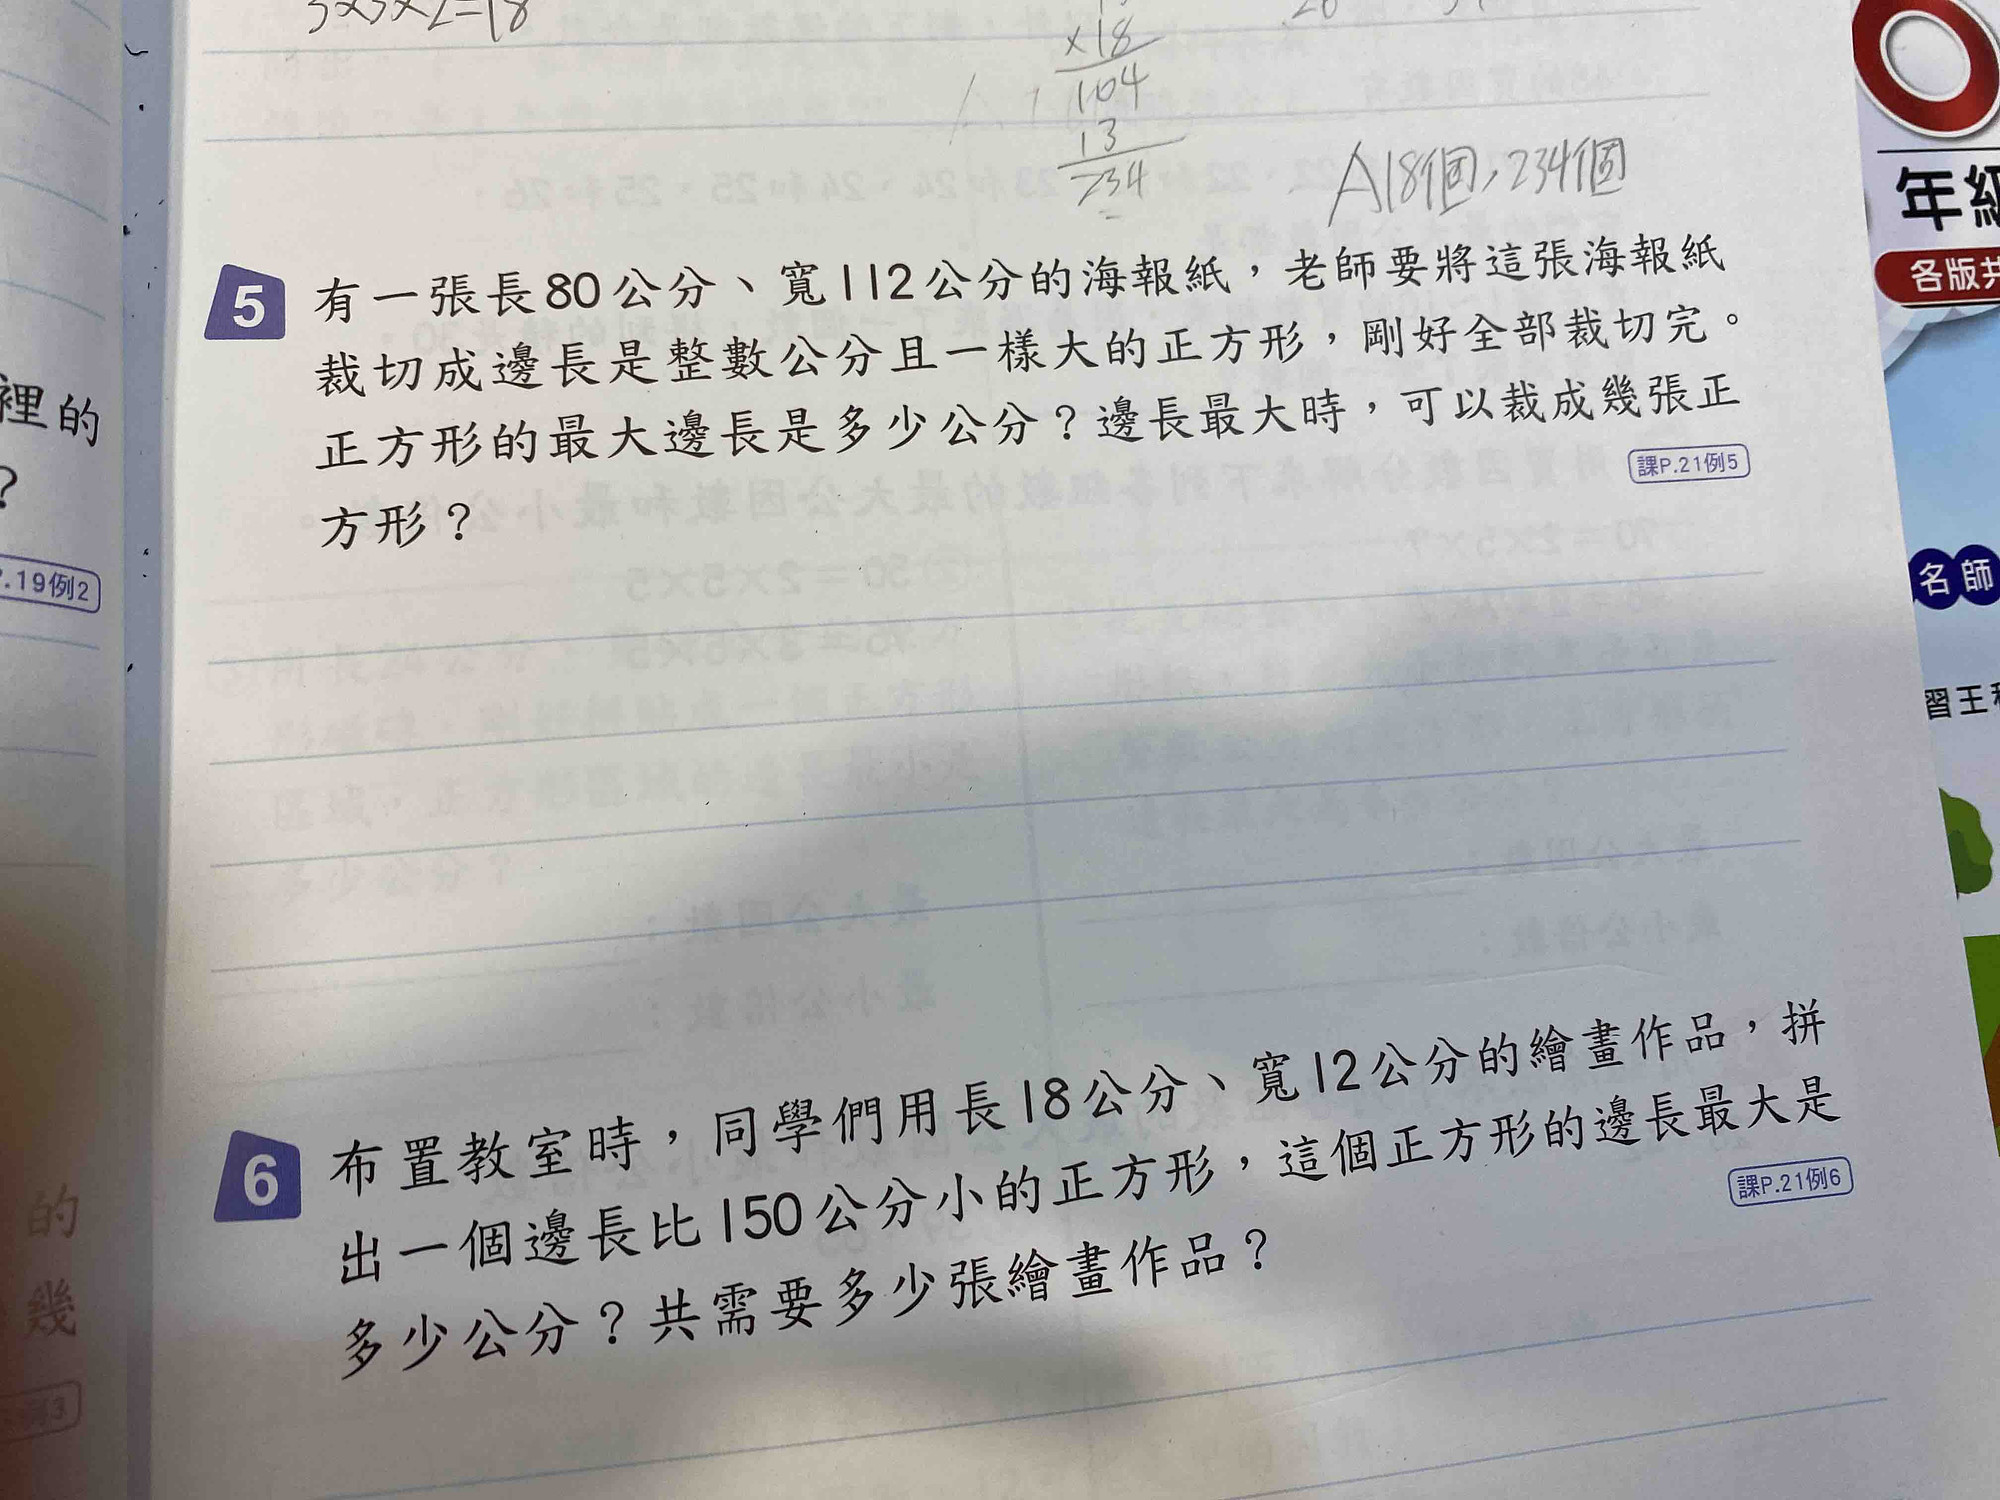 3×3×2=18
×18
104
13
234
A18個,234個
5 有一張長80公分、寬112公分的海報紙,老師要將這張海報紙
裁切成邊長是整數公分且一樣大的正方形,剛好全部裁切完。
正方形的最大邊長是多少公分?邊長最大時,可以裁成幾張正
方形?
課P.21例5
6 布置教室時,同學們用長18公分、寬12公分的繪畫作品,拼
出一個邊長比150公分小的正方形,這個正方形的邊長最大是
多少公分?共需要多少張繪畫作品?
課P.21例6
裡的
?
.19例2
的
幾
例3
年級
各版共
名師
習王